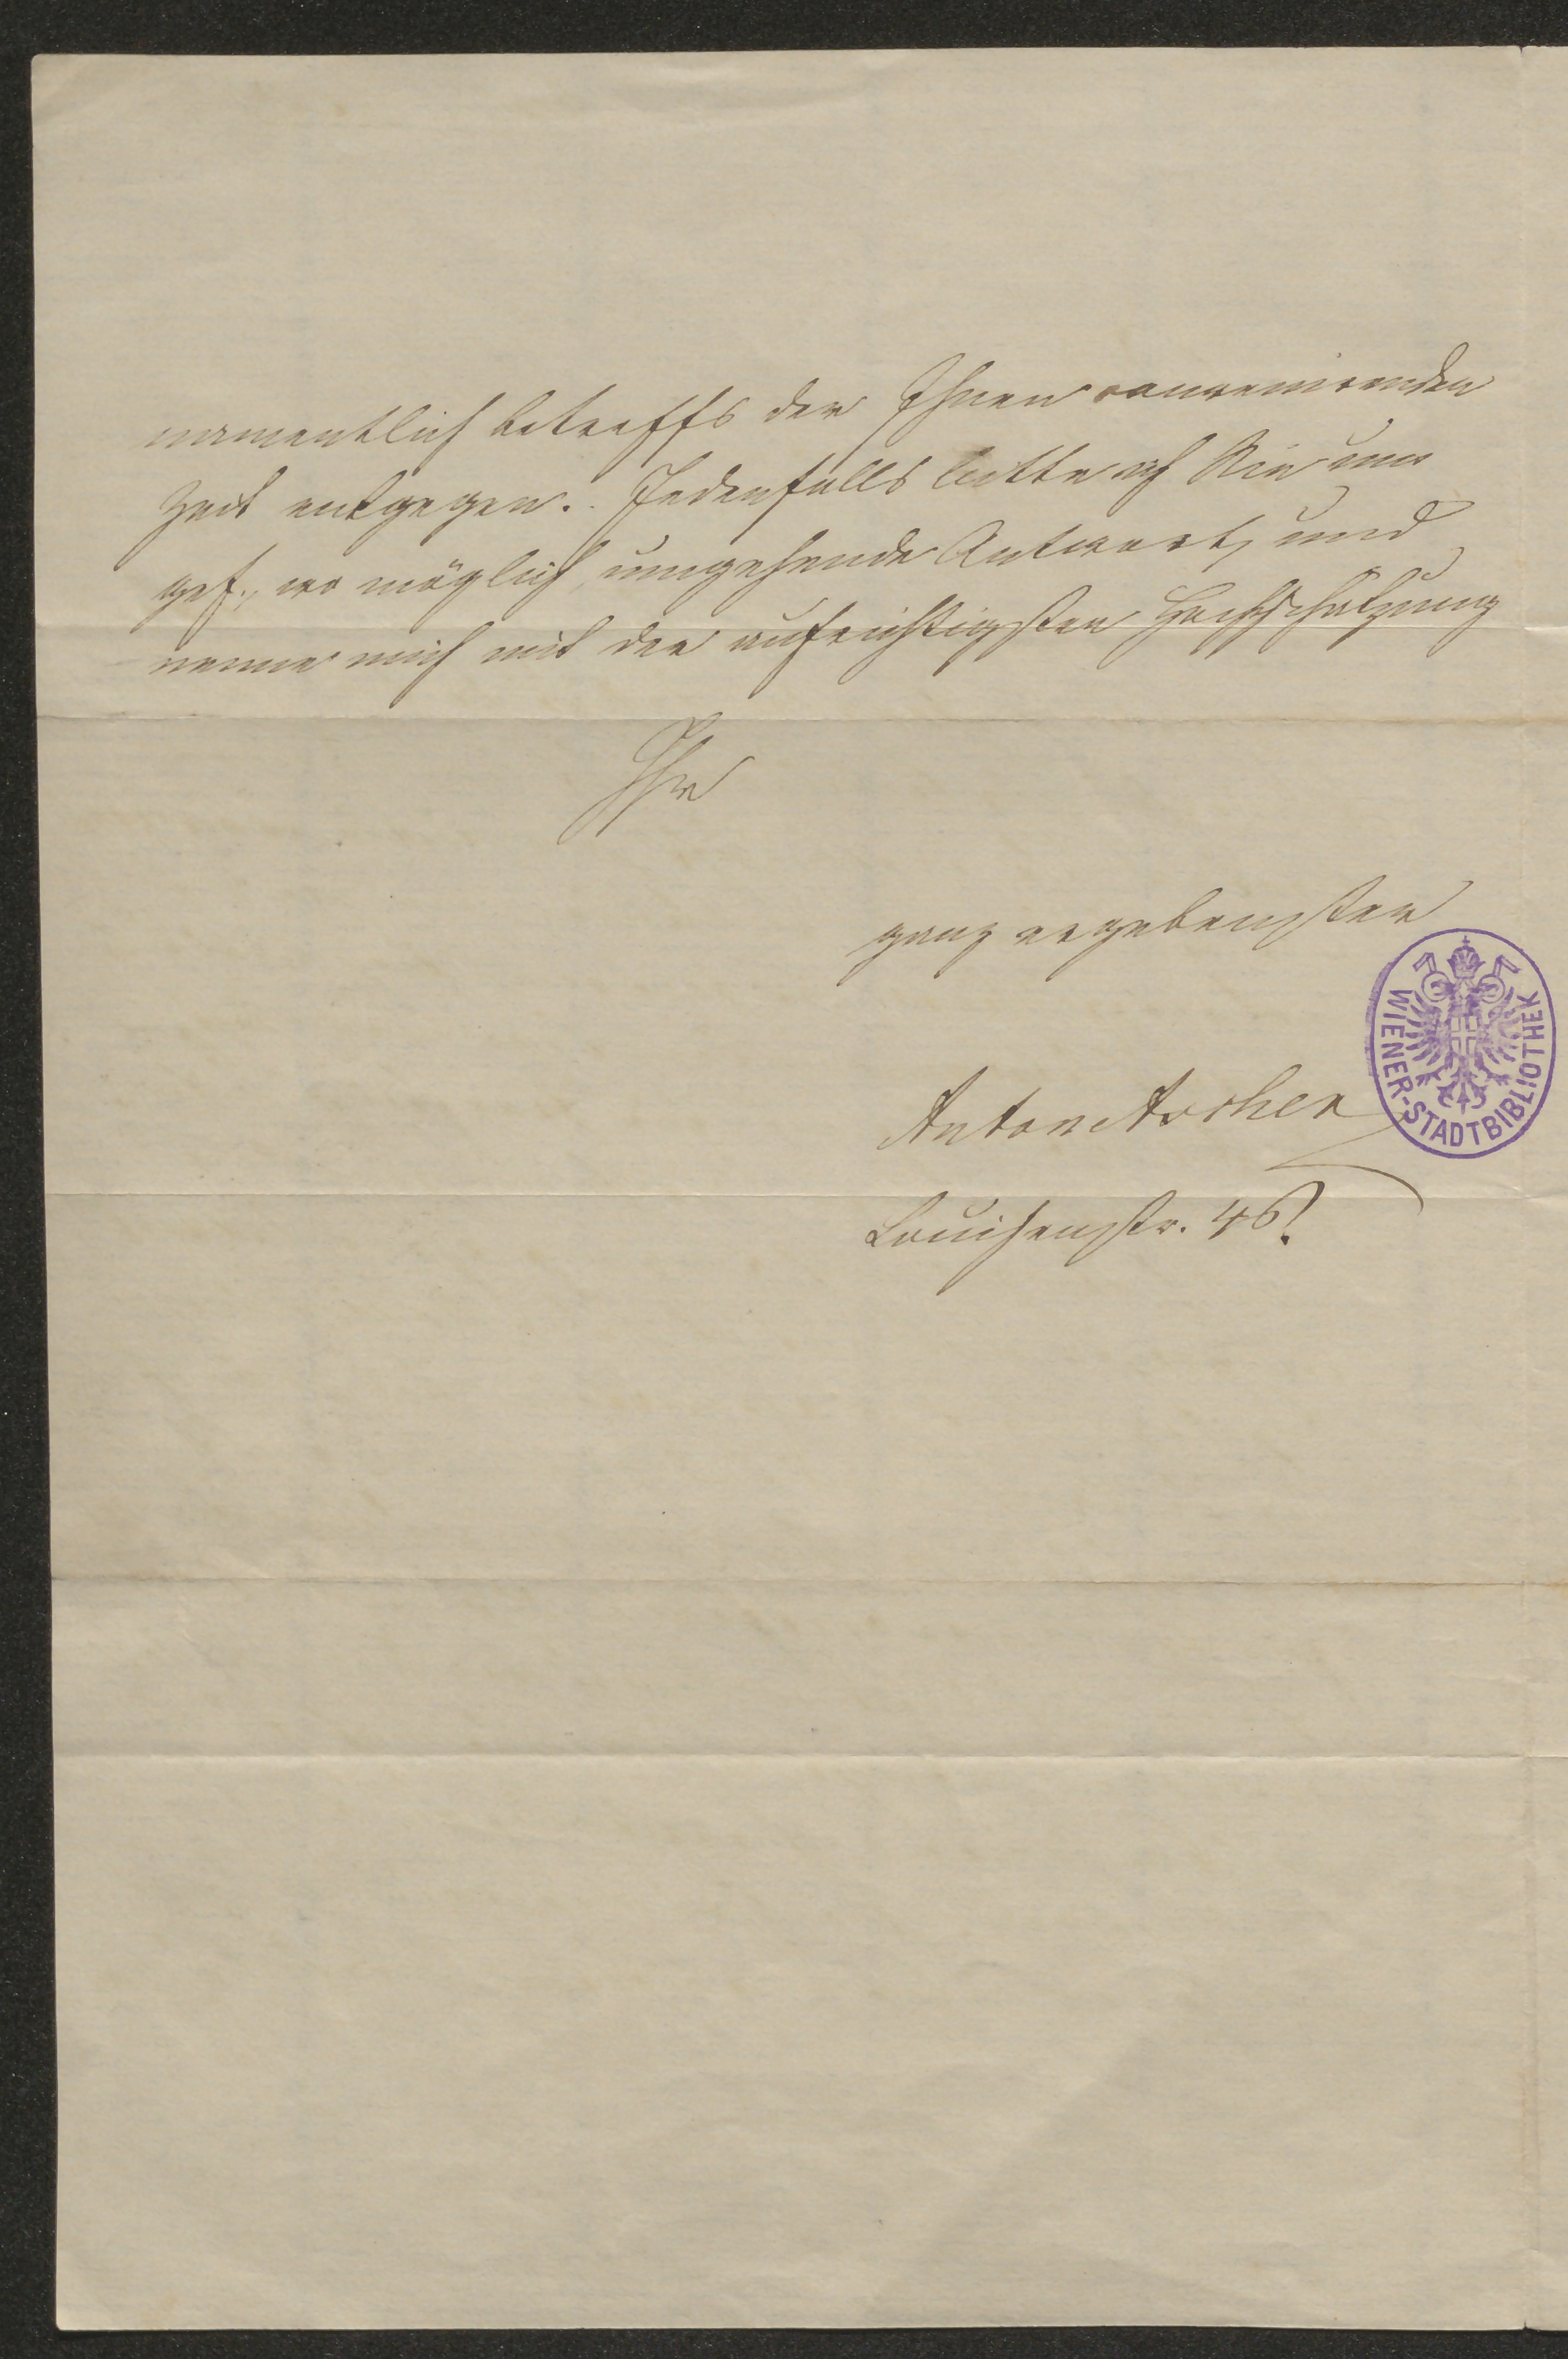 namentlich betreffs der Ihnen convenirenden
Zeit entgegen. Jedenfalls bitte ich Sie um
gef., wo möglich, umgehende Antwort, und
nenne mich mit der aufrichtigsten Hochschätzung
Ihr
ganz ergebenster
Anton Ascher
Louisenstr. 46.
WIENER-STADTBIBLIOTHEK